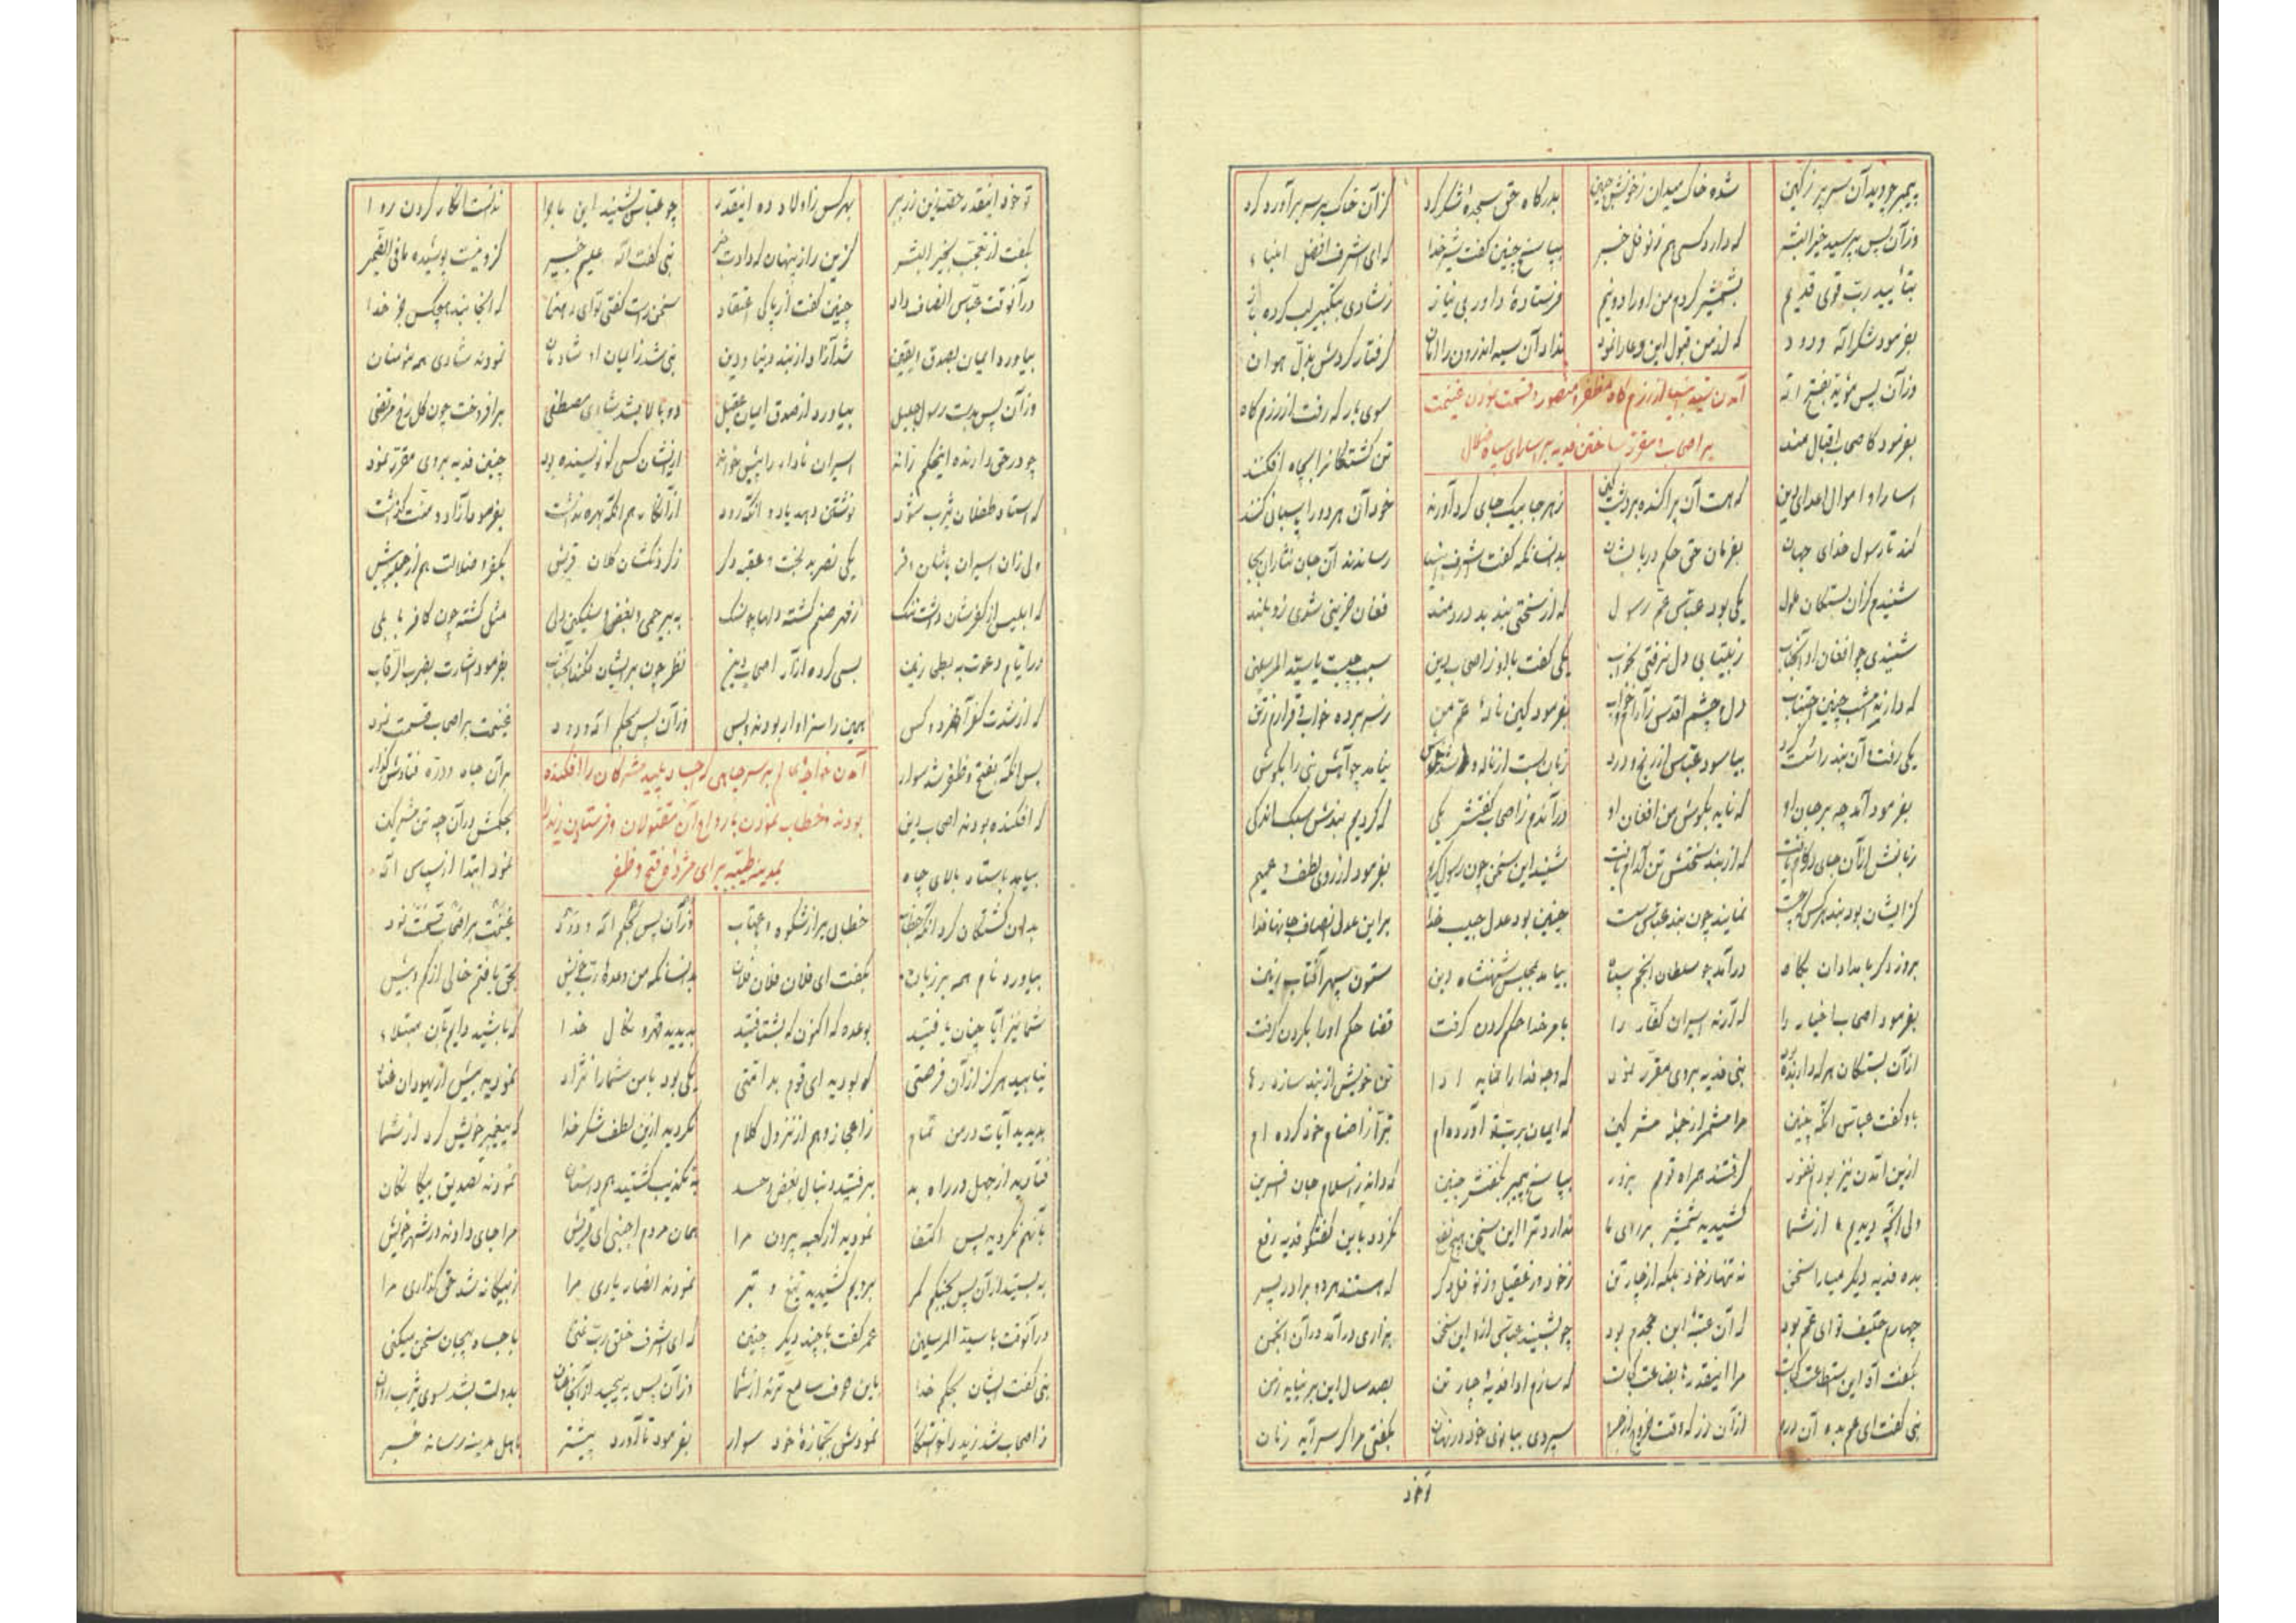 پیمبر چو دید آن سر پر ز کین شده خاک میدان ز خونش عجین بدرگاه حق سجدهٔ شکر کرد کزان خاک بر سر برآورد گرد
وزآن پس بپرسید خیر البشر که دارد کسی هم ز نوفل خبر بپاسخ چنین گفت شیر خدا که ای اشرف افضل انبیاء
بتأیید رب قوی قدیم بشمشیر کردم من او را دو نیم فرستادهٔ داور بی نیاز ز شادی بتکبیر لب کرد باز
بفرمود شکرانه ودود که از من قبول این دعا را نمود نداد آن سیه اندرون را امان گرفتار کردش بذل هوان
آمدن سید انبیا از رزم گاه مظفر و منصور و قسمت نمودن غنیمت
بر اصحاب و مقرر ساختن فدیه بر اسارای سپاه ضلال
وزآن پس مؤید بفتح اله سوی بارگه رفت از رزم گاه
بفرمود کاصحاب اقبال مند تن کشتگان را بچاه افکنند
اسارا و اموال اعدای دین که هست آن پراکنده بر دشت کین ز هر جا بیک جای گرد آورند خود آن هر دو را پاسبانی کنند
کند تا رسول خدای جهان بفرمان حق حکم در بابشان بدانسانکه گفت اشرف انبیا رساندند آن جان نثاران بجا
شنیدم کزان بستگان ملول یکی بود عباس عم رسول که از سختی بند بد دردمند فغان حزینی شدی زو بلند
شنیدی چو افغان او آنجناب ز بیتابی دل نرفتی بخواب یکی گفت با او ز اصحاب دین سبب چیست یا سید المرسلین
که داری تو امشب چنین اجتناب دل و چشم اقدس ز آرام و خواب بفرمود کین نالهٔ عم من ز سر برده خواب و قرارم ز تن
یکی رفت و آن بند را سست کرد بیاسود عباس از رنج و درد زبان بست از ناله و شد خموش نیامد چو آهش نبی را بگوش
بفرمود آمد چه بر جان او که ناید بگوش من افغان او در آندم ز اصحاب گفتش یکی که کردیم بندش سبک اندکی
زبانش از آن جای در کام یافت که از بند سختش تن آرام یافت شنید این سخن چون رسول کریم بفرمود از روی لطف عمیم
کز ایشان بود بند هر کس که سخت نمایند چون بند عباس سست چنین بود عدل حبیب خدا بر این عدل و انصاف جانها فدا
بروز دگر بامدادان پگاه در آمد چو سلطان انجم سپاه بیامد بمجلس شهنشاه دین ستون سپهر آفتاب زمین
بفرمود اصحاب اخیار را که آرند اسیران کفار را بامر خدا حکم کردن گرفت قضا حکم او را بگردن گرفت
از آن بستگان هر که دارنده بود نبی فدیه بر وی مقرر نمود که وجه فدا را نماید ادا تن خویش از بند سازد رها
باو گفت عباس آنگه چنین مرا مشمر از جمله مشرکین که ایمان برب تو آورده ام تبرا ز اصنام خود کرده ام
ازین آمدن نیز بودم نفور گرفتند همراه قوم بزور بپاسخ پیمبر بگفتش چنین که داند ز اسلام جان آفرین
ولی آنچه دیدیم ما از شما کشیدید شمشیر بر روی ما ندارد ترا این سخن هیچ نفع نگردد باین گفتگو فدیه رفع
بده فدیه دیگر میارا سخن نه تنها ز خود بلکه از چار تن ز خود وز عقیل و ز نوفل دگر که هستند هر دو برادر پسر
چهارم حلیف تو ای عم بود که آن عتبهٔ ابن جحدم بود چو بشنید عباس ازو این سخن بزاری در آمد در آن انجمن
بگفت آه این استطاعت کجاست مرا اینقدرها بضاعت کجاست که سازم ادا فدیهٔ چار تن بصد سال این بر نیاید ز من
نبی گفت ای عم بده آن درم از آن زر که وقت خروج از حرم سپردی ببانوی خود در نهان بگفتی مرا گر سر آید زمان
تو خود
تو خود اینقدر حقت این زر ببر بهر کس ز اولاد ده اینقدر چو عباس بشنید این ماجرا ندانست انکار کردن روا
بگفت از تعجب بخیر البشر کزین راز پنهان که دادت خبر نبی گفت الله علیم خبیر کزو نیست پوشیده ما فی الضمیر
در آنوقت عباس انصاف داد چنین گفت از پاکی اعتقاد سخن راست گفتی تو ای رهنما که آنجا نبد هیچکس جز خدا
بیاورد ایمان بصدق یقین شد آزاد از بند دنیا و دین نبی شد ز ایمان او شادمان نمودند شادی همه مؤمنان
وزآن پس بدست رسول جلیل بیاورد از صدق ایمان عقیل دو بالا بشد شادی مصطفی برافروخت چون گل رخ مرتضی
چو در حق دارنده اینحکم راند اسیران نادار را پیش خواند از ایشان کسی کو نویسنده بود چنین فدیه بر وی مقرر نمود
که استاد طفلان یثرب شود نوشتن دهد یاد و آنگه رود از آن کار هم آنکه بهره نداشت بفرمود آزاد و منت گذاشت
ولی زان اسیران با شان و فر یکی نضر بدبخت و عقبه دگر ز گردنکشان کلان قریش بکفر و ضلالت هم از جمله بیش
که ابلیس از کفرشان داشت ننگ ز قهر صنم گشته دلها چو سنگ به بیرحمی و بغض و سنگین دلی مثل گشته چون کافر بابلی
در ایام دعوت به بطحی زمین بسی کرده آزار اصحاب دین نظر چون بر ایشان فکند آنجناب بفرمود اشارت بضرب الرقاب
که از شدت کفر آنهر دو کس همین را سزاوار بودند و بس وزآن پس بحکم اله ودود غنیمت بر اصحاب قسمت نمود
آمدن خواجهٔ انام بر سر چاهی که اجساد پلید مشرکان را افکنده
بودند و خطاب نمودن با ارواح آن مقتولان و فرستادن زید را
بمدینه طیبه برای مژدهٔ فتح و ظفر
پس آنگه بفتح و ظفر شد سوار بر آن چاه در ره فتادش گذار
که افکنده بودند اصحاب دین بحکمش در آن چه تن مشرکین
بیامد باستاد بالای چاه نمود ابتدا از سپاس اله
بدان کشتگان کرد آنگه خطاب خطابی پر از شکوه و عتاب وزآن پس بحکم اله ودود غنیمت بر اصحاب قسمت نمود
بیاورد نام همه بر زبان بگفت ای فلان و فلان و فلان بدانسانکه من وعدهٔ رب خویش بحق یافتم خالی از کم و بیش
شما نیز آیا چنان یافتید بوعده که اکنون که بشتافتید بدیدید قهر و نکال خدا که باشید دایم بآن مبتلاء
نیابید هرگز از آن فرصتی که بودید ای قوم بد امتی یکی بود با من شما را نژاد نمودید بیش از یهودان عناد
بدیدید آیات در من تمام ز اعجاز و هم از نزول کلام نکردید ازین لطف شکر خدا که پیغمبر خویش کرد از شما
فتادید از جهل در راه بد برفتید دنبال بغض و حسد به تکذیب گشتید همداستان نمودند تصدیق بیگانگان
بآنهم نکردید پس اکتفا نمودید از کعبه بیرون مرا همان مردم اجنبی ای قریش مرا جای دادند در شهر خویش
به بستید از آن پس بجنگم کمر برویم کشیدید تیغ و تبر نمودند انصار یاری مرا ز بیگانه شد حق گذاری مرا
در آنوقت با سید المرسلین عمر گفت با چند دیگر چنین که ای اشرف خلق رب غنی با جساد بیجان سخن میکنی
نبی گفت ایشان بحکم خدا باین حرف سامع ترند از شما وزآن پس به پیچید از آنجا عنان بدولت بشد سوی یثرب روان
ز اصحاب شد زید را خواستگار نمودش بجمازهٔ خود سوار بفرمود تا آورد پیشتر باهل مدینه رساند خبر